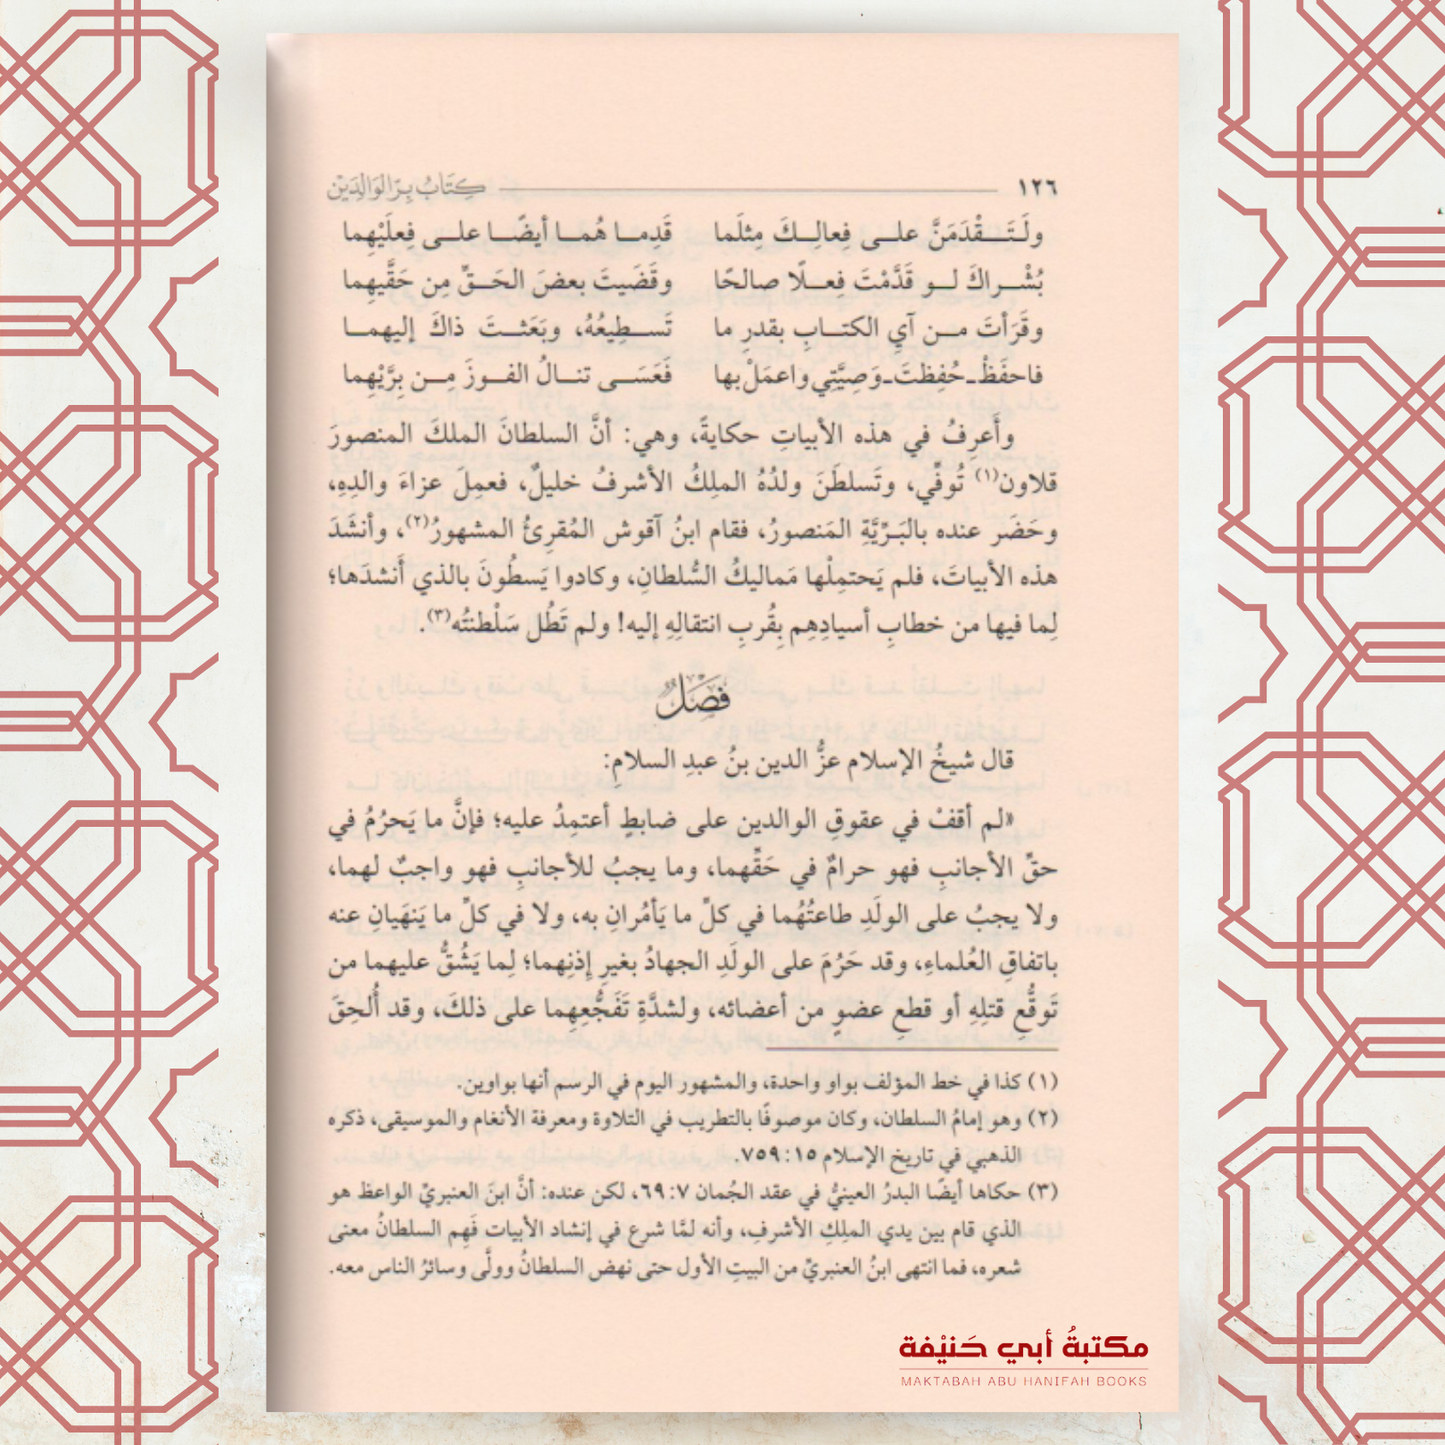 ١٢٦ كِتَابُ بِرِّ الوَالِدَيْن
ولَتَقْدَمَنَّ على فِعالِكَ مِثلَما قَدِما هُما أيضًا على فِعلَيْهِما
بُشْراكَ لو قَدَّمْتَ فِعلًا صالحًا وقَضَيتَ بعضَ الحَقِّ مِن حَقَّيهِما
وقَرَأتَ من آيِ الكتابِ بقدرِ ما تَسطِيعُهُ، وبَعَثتَ ذاكَ إليهما
فاحفَظْ ـ حُفِظتَ ـ وَصِيَّتِي واعمَلْ بها فَعَسَى تنالُ الفوزَ مِن بِرَّيْهِما
وأَعرِفُ في هذه الأبياتِ حكايةً، وهي: أنَّ السلطانَ الملكَ المنصورَ
قلاون(١) تُوفِّي، وتَسلطَنَ ولدُهُ الملِكُ الأشرفُ خليلٌ، فعمِلَ عزاءَ والدِهِ،
وحَضَر عنده بالبَرِّيَّةِ المَنصورُ، فقام ابنُ آقوش المُقرِئُ المشهورُ(٢)، وأنشَدَ
هذه الأبياتَ، فلم يَحتمِلْها مَماليكُ السُّلطانِ، وكادوا يَسطُونَ بالذي أَنشدَها؛
لِما فيها من خطابِ أسيادِهِم بِقُربِ انتقالِهِ إليه! ولم تَطُل سَلْطنتُه(٣).
فَصْلٌ
قال شيخُ الإسلام عزُّ الدين بنُ عبدِ السلامِ:
«لم أقفْ في عقوقِ الوالدين على ضابطِ أعتمِدُ عليه؛ فإنَّ ما يَحرُمُ في
حقِّ الأجانبِ فهو حرامٌ في حَقِّهما، وما يجبُ للأجانبِ فهو واجبٌ لهما،
ولا يجبُ على الولَدِ طاعتُهُما في كلِّ ما يَأمُرانِ به، ولا في كلِّ ما يَنهَيانِ عنه
باتفاقِ العُلماءِ، وقد حَرُمَ على الولَدِ الجهادُ بغيرِ إذنِهما؛ لِما يَشُقُّ عليهما من
تَوقُّعِ قتلِهِ أو قطعِ عضوٍ من أعضائه، ولشدَّةِ تَفَجُّعِهِما على ذلكَ، وقد أُلحِقَ
(١) كذا في خط المؤلف بواو واحدة، والمشهور اليوم في الرسم أنها بواوين.
(٢) وهو إمامُ السلطان، وكان موصوفًا بالتطريب في التلاوة ومعرفة الأنغام والموسيقى، ذكره
الذهبي في تاريخ الإسلام ١٥: ٧٥٩.
(٣) حكاها أيضًا البدرُ العينيُّ في عقد الجُمان ٧: ٦٩، لكن عنده: أنَّ ابنَ العنبريِّ الواعظ هو
الذي قام بين يدي الملِكِ الأشرفِ، وأنه لمَّا شرع في إنشاد الأبيات فَهِم السلطانُ معنى
شعره، فما انتهى ابنُ العنبريِّ من البيتِ الأول حتى نهض السلطانُ وولَّى وسائرُ الناس معه.
مكتبةُ أبي حَنيْفة
MAKTABAH ABU HANIFAH BOOKS